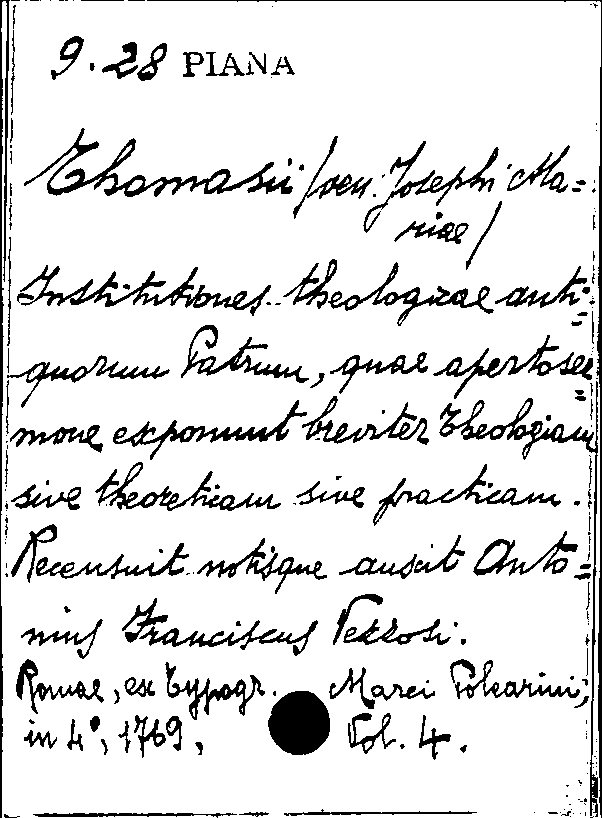 9.28 PIANA
Thomasii /ven: Josephi Ma=
riae/
Institutiones theologicae anti=
quorum Patrum, quae aperto ser=
mone exponunt breviter Theologiam
sive theoreticam sive practicam.
Recensuit notisque auxit Anto=
nius Franciscus Vezzosi.
Romae, ex Typogr. Marci Palearini,
in 4°, 1769, Vol. 4.